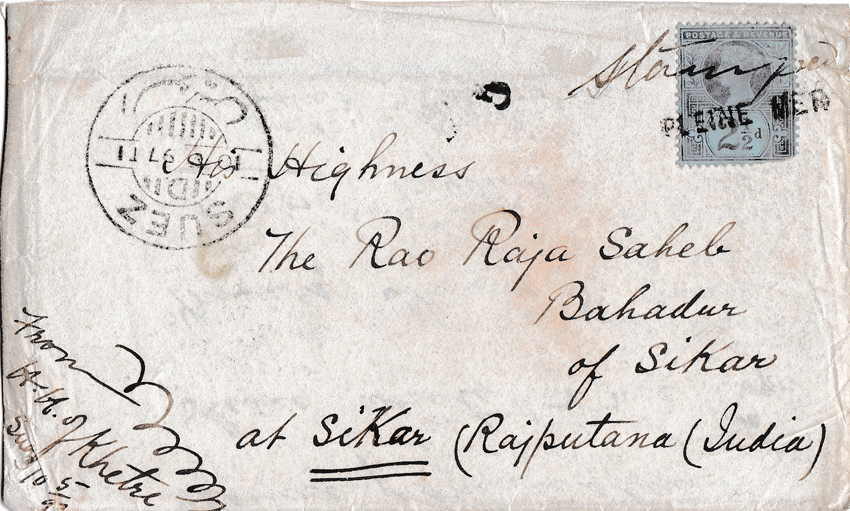 Stamped
POSTAGE & REVENUE
PLEINE MER
2½d
SUEZ
His Highness
The Rao Raja Saheb
Bahadur
of Sikar
at Sikar (Rajputana (India)
From
H.H. of Khetri
Suez 10/5/97